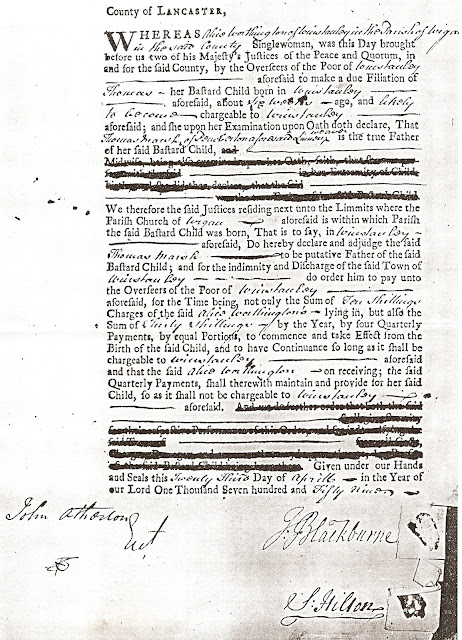 County of LANCASTER,
WHEREAS Alice worthington of winstanley in the Parish of wigan
in the said County Singlewoman, was this Day brought
before us two of his Majesty's Justices of the Peace and Quorum, in
and for the said County, by the Overseers of the Poor of winstanley
aforesaid to make a due Filiation of
Thomas - her Bastard Child born in winstanley
aforesaid, about Six weeks - ago, and likely
to become chargeable to winstanley
aforesaid; and she upon her Examination upon Oath doth declare, That
Thomas Marsh of Pemberton aforesaid is the true Father
of her said Bastard Child, and
We therefore the said Justices residing next unto the Limmits where the
Parish Church of wigan aforesaid is within which Parish
the said Bastard Child was born, That is to say, in winstanley -
aforesaid, Do hereby declare and adjudge the said
Thomas Marsh to be putative Father of the said
Bastard Child; and for the indimnity and Discharge of the said Town of
winstanley do order him to pay unto
the Overseers of the Poor of winstanley
aforesaid, for the Time being, not only the Sum of Ten Shillings
Charges of the said Alice worthington's - lying in, but also the
Sum of Shillings - by the Year, by four Quarterly
Payments, by equal Portions, to commence and take Effect from the
Birth of the said Child, and to have Continuance so long as it shall be
chargeable to winstanley aforesaid
and that the said Alice worthington - on receiving; the said
Quarterly Payments, shall therewith maintain and provide for her said
Child, so as it shall not be chargeable to winstanley
aforesaid. And we do further order that both the said
Given under our Hands
and Seals this Twenty Third Day of Aprill - in the Year of
our Lord One Thousand Seven hundred and Fifty Nine
John Atherton
J: Blackburne
S: Hilton